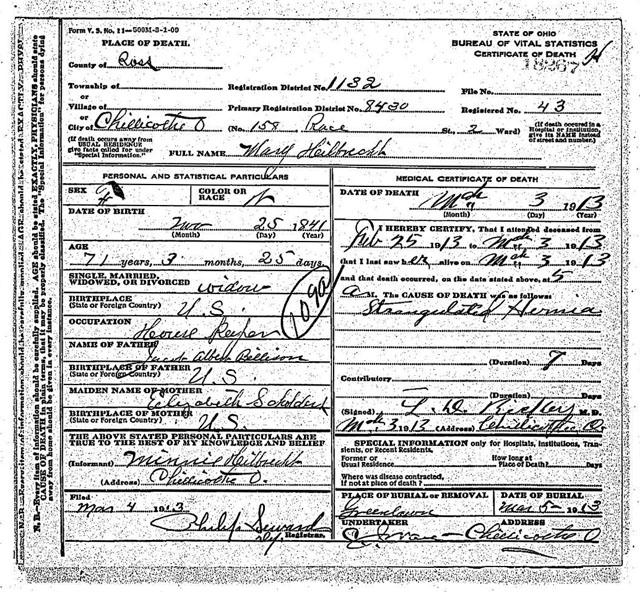 Form V. S. No. 11—50M-3-1-00
PLACE OF DEATH.
STATE OF OHIO
BUREAU OF VITAL STATISTICS
CERTIFICATE OF DEATH
18267
County of Ross
Township of
or
Village of
or
City of Chillicothe O
Registration District No. 1132
File No.
Primary Registration District No. 8430
Registered No. 43
(No. 158 Race St., 2 Ward)
(If death occurs away from USUAL RESIDENCE give facts called for under "Special Information.")
(If death occurred in a Hospital or Institution, give its NAME instead of street and number.)
FULL NAME Mary Heilbrecht
PERSONAL AND STATISTICAL PARTICULARS
SEX F
COLOR OR RACE W
DATE OF BIRTH
Nov 25 1841
(Month) (Day) (Year)
AGE
71 years, 3 months, 25 days.
SINGLE, MARRIED,
WIDOWED, OR DIVORCED widow
BIRTHPLACE
(State or Foreign Country) U.S.
OCCUPATION
House Keeper
109a
NAME OF FATHER
Albert
BIRTHPLACE OF FATHER
(State or Foreign Country) U.S.
MAIDEN NAME OF MOTHER
Elizabeth
BIRTHPLACE OF MOTHER
(State or Foreign Country) U.S.
THE ABOVE STATED PERSONAL PARTICULARS ARE
TRUE TO THE BEST OF MY KNOWLEDGE AND BELIEF
(Informant) Minnie Heilbrecht
(Address) Chillicothe O.
Filed
Mar 4 1913
Philip
Registrar.
MEDICAL CERTIFICATE OF DEATH
DATE OF DEATH
Mch 3 1913
(Month) (Day) (Year)
I HEREBY CERTIFY, That I attended deceased from
Feb 25 1913 to Mch 3 1913
that I last saw her alive on Mch 3 1913
and that death occurred, on the date stated above, at 5
A M. The CAUSE OF DEATH was as follows:
Strangulated Hernia
(Duration) 7 Days
Contributory
(Duration) Days
(Signed) M.D.
Mch 3 1913 (Address) Chillicothe O.
SPECIAL INFORMATION only for Hospitals, Institutions, Transients, or Recent Residents.
Former or
Usual Residence
How long at
Place of Death?
Days
Where was disease contracted,
if not at place of death?
PLACE OF BURIAL OR REMOVAL
Greenlawn
DATE OF BURIAL
Mar 5 1913
UNDERTAKER
ADDRESS
Chillicothe O